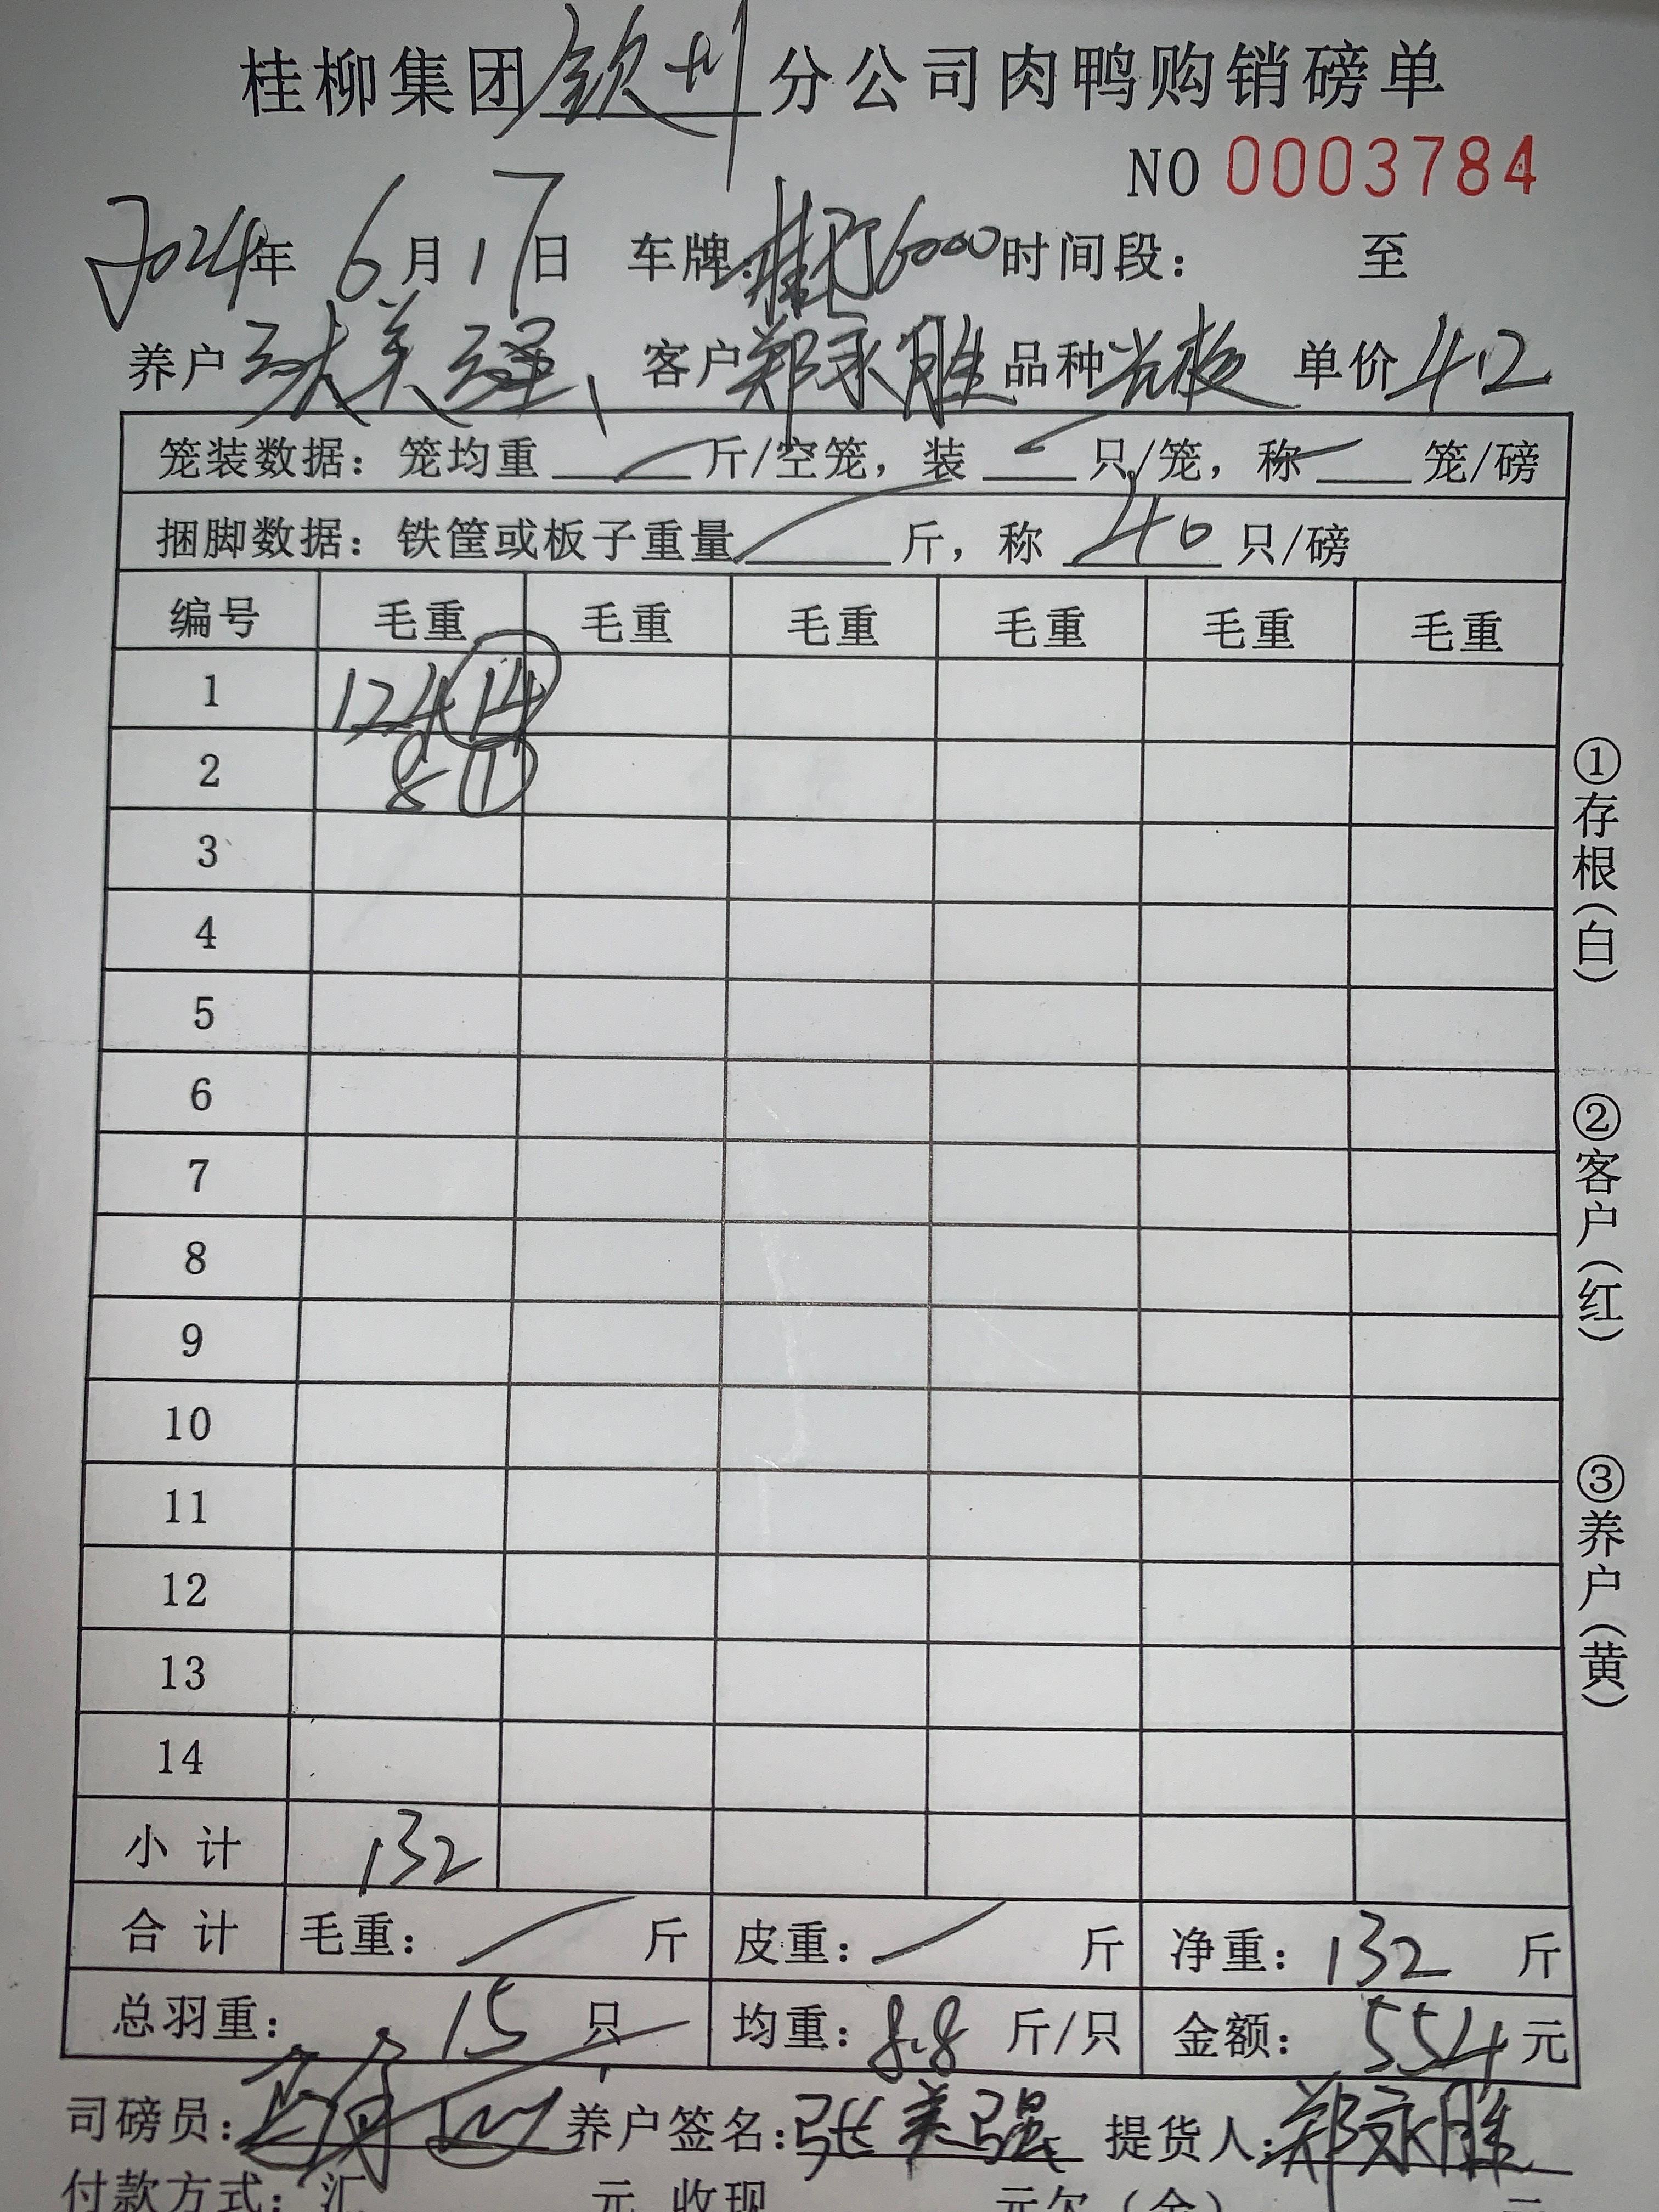 桂柳集团钦州分公司肉鸭购销磅单
NO 0003784
2024年 6月17日 车牌: 桂 6000 时间段: 至
养户 张美强、 客户 郑永胜 品种 单价 4.2
笼装数据: 笼均重 / 斤/空笼, 装 / 只/笼, 称 / 笼/磅
捆脚数据: 铁筐或板子重量 / 斤, 称 40 只/磅
编号 毛重 毛重 毛重 毛重 毛重 毛重
1 124 ⑭
2 8 ①
3
4
5
6
7
8
9
10
11
12
13
14
小计 132
合计 毛重: / 斤 皮重: / 斤 净重: 132 斤
总羽重: 15 只 均重: 8.8 斤/只 金额: 554 元
司磅员: 养户签名: 张美强 提货人: 郑永胜
付款方式: 汇 元 收现 元欠(余) 元
①存根(白)
②客户(红)
③养户(黄)